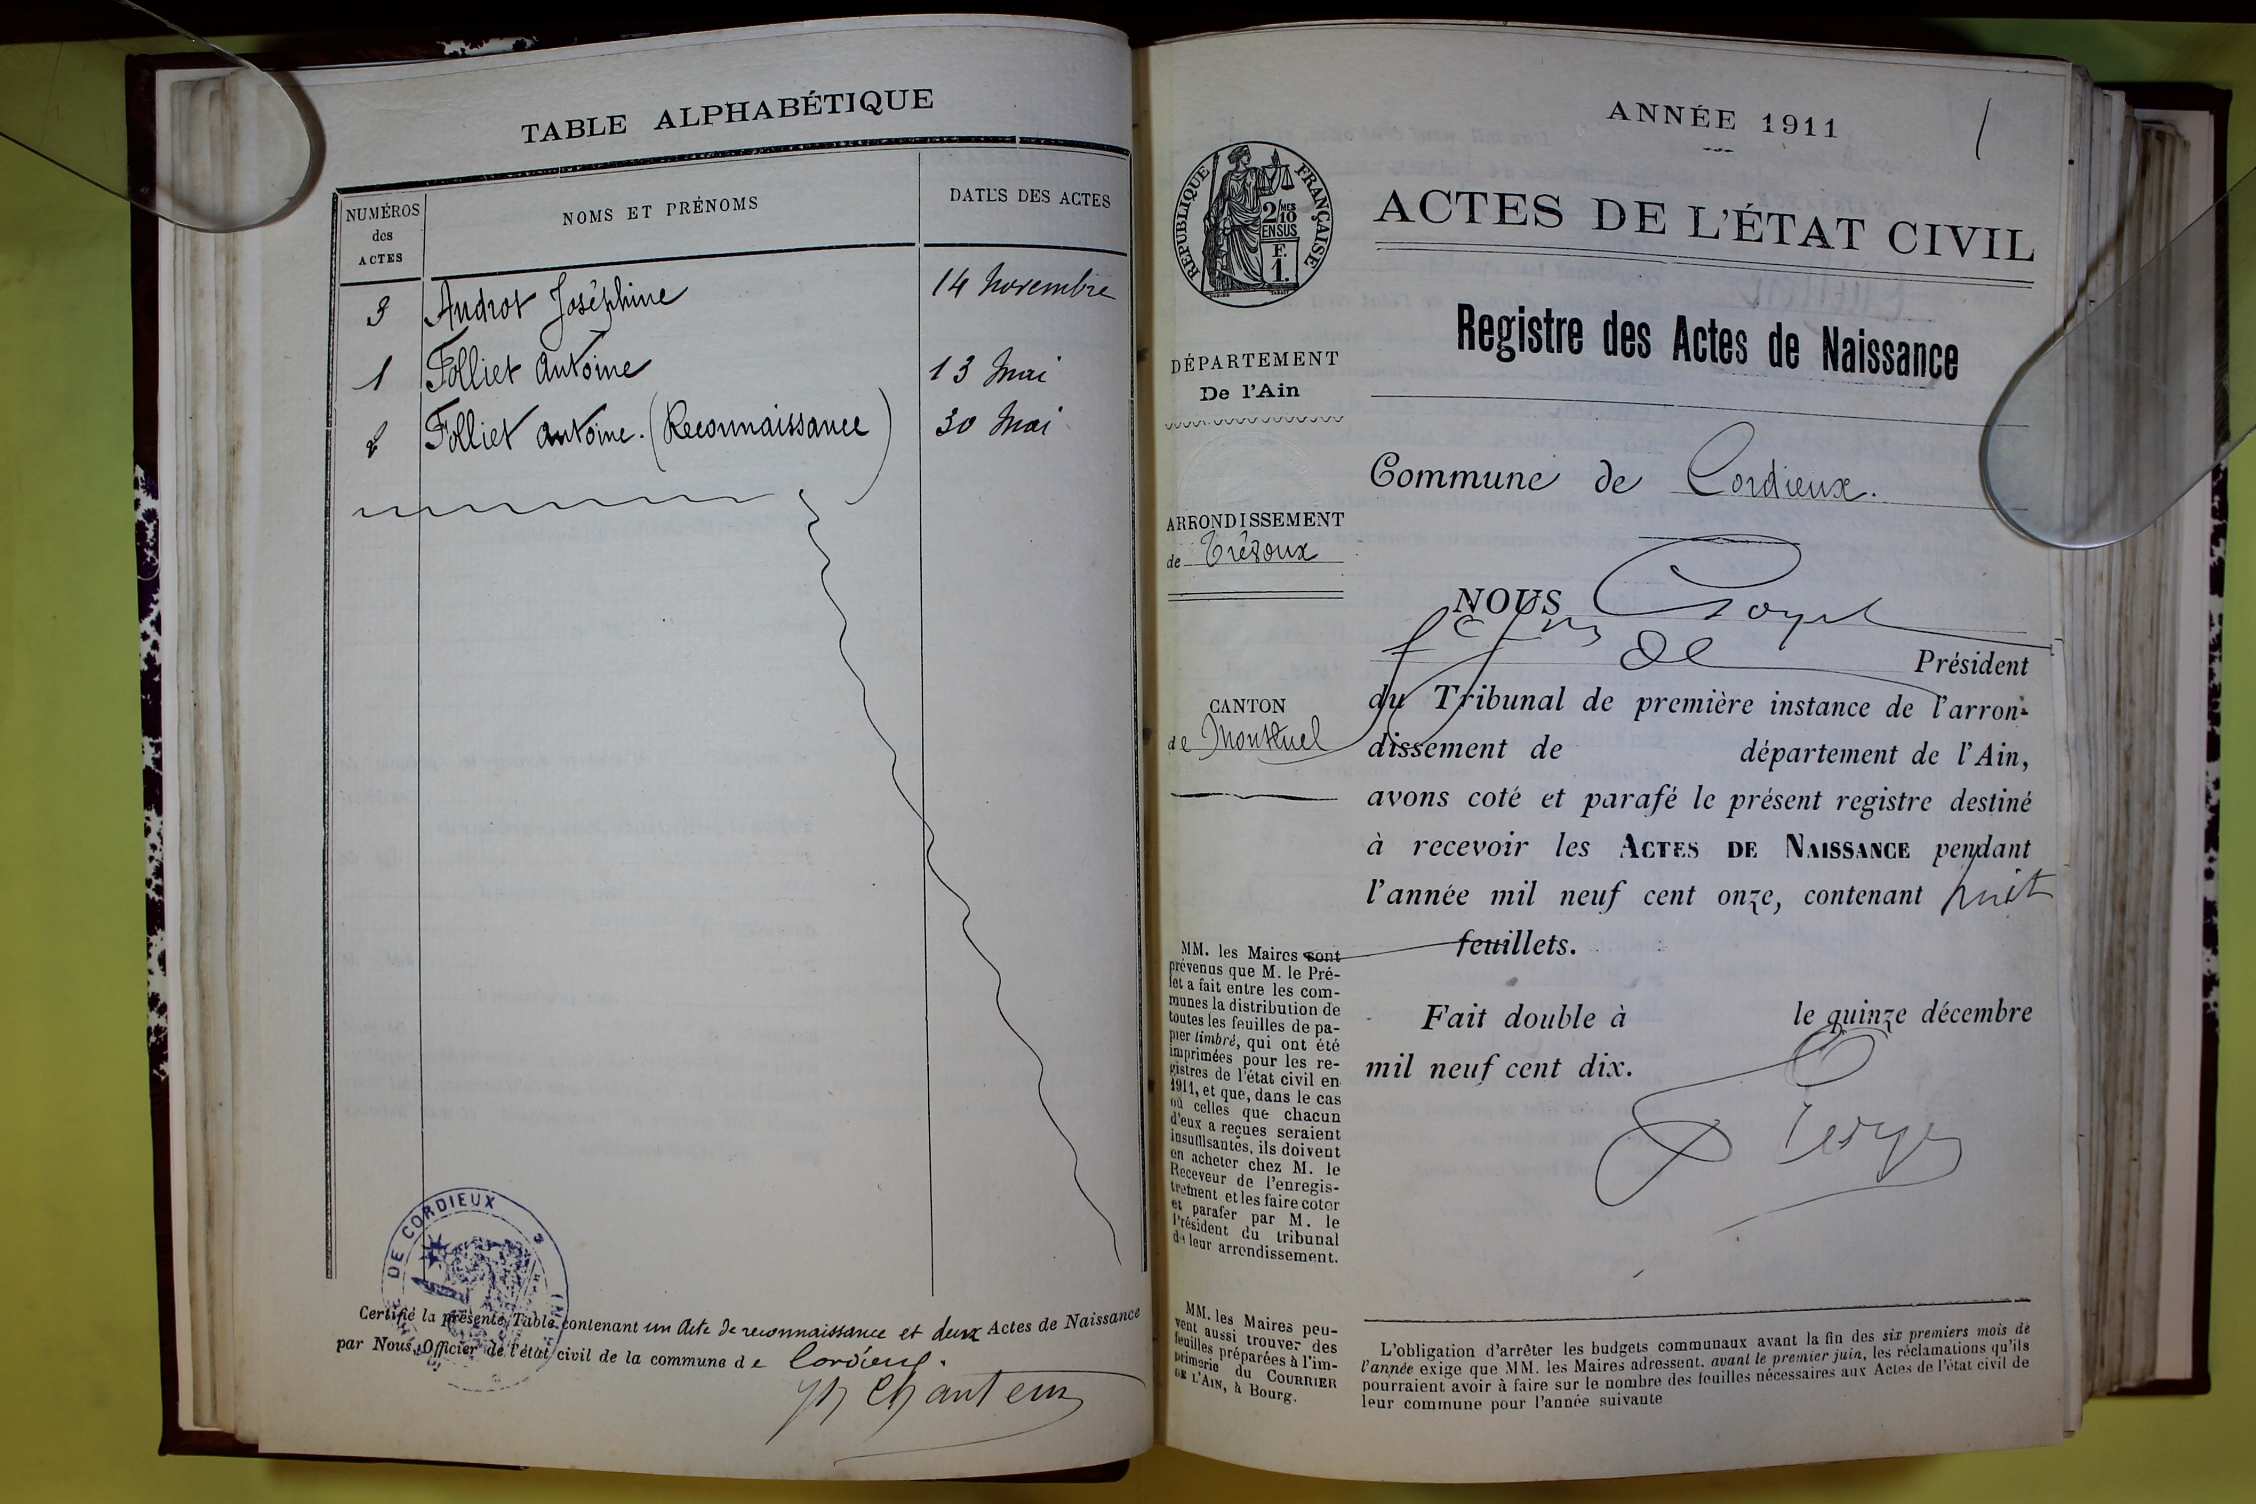 TABLE ALPHABÉTIQUE
NUMÉROS
des
ACTES
NOMS ET PRÉNOMS
DATES DES ACTES
3 Androt Joséphine 14 Novembre
1 Folliet Antoine 13 Mai
2 Folliet Antoine. (Reconnaissance) 30 Mai
DE CORDIEUX
Certifié la présente Table contenant un Acte de reconnaissance et deux Actes de Naissance
par Nous, Officier de l'état civil de la commune de Cordieux.
Chanteur
ANNÉE 1911
1
RÉPUBLIQUE FRANÇAISE
2/10 MES
EN SUS
F.
1.
ACTES DE L'ÉTAT CIVIL
Registre des Actes de Naissance
DÉPARTEMENT
De l'Ain
Commune de Cordieux.
ARRONDISSEMENT
de Trévoux
CANTON
de Montluel
NOUS
Président
du Tribunal de première instance de l'arron-
dissement de département de l'Ain,
avons coté et parafé le présent registre destiné
à recevoir les ACTES DE NAISSANCE pendant
l'année mil neuf cent onze, contenant huit
feuillets.
Fait double à le quinze décembre
mil neuf cent dix.
MM. les Maires sont
prévenus que M. le Pré-
fet a fait entre les com-
munes la distribution de
toutes les feuilles de pa-
pier timbré, qui ont été
imprimées pour les re-
gistres de l'état civil en
1911, et que, dans le cas
où celles que chacun
d'eux a reçues seraient
insuffisantes, ils doivent
en acheter chez M. le
Receveur de l'enregis-
trement et les faire coter
et parafer par M. le
Président du tribunal
de leur arrondissement.
MM. les Maires peu-
vent aussi trouver des
feuilles préparées à l'im-
primerie du COURRIER
DE L'AIN, à Bourg.
L'obligation d'arrêter les budgets communaux avant la fin des six premiers mois de
l'année exige que MM. les Maires adressent. avant le premier juin, les réclamations qu'ils
pourraient avoir à faire sur le nombre des feuilles nécessaires aux Actes de l'état civil de
leur commune pour l'année suivante